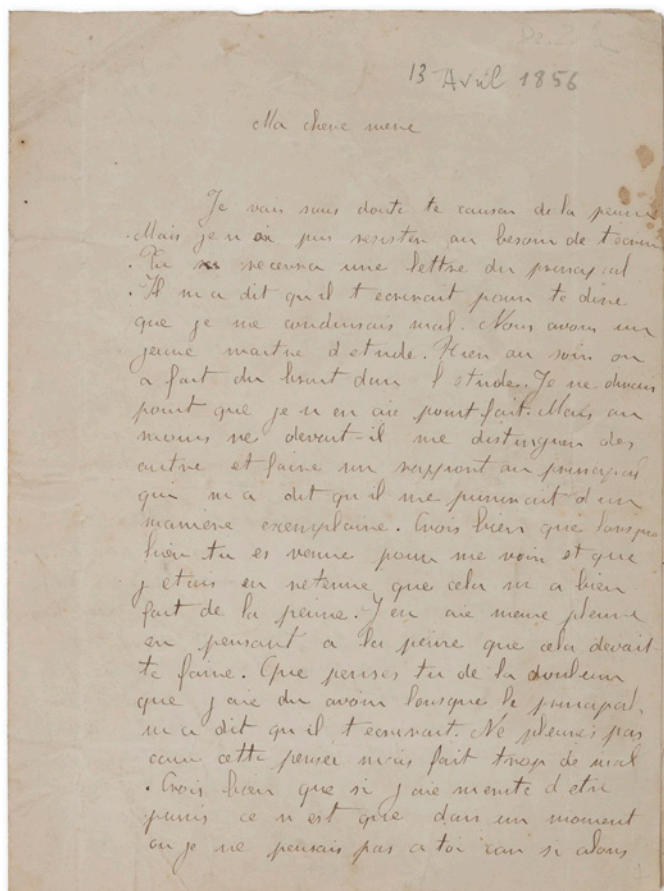 13 Avril 1856
Ma chere mere
Je vais sans doute te causer de la peine
Mais je n ai pus resister au besoin de t ecrire
. Tu recevra une lettre du principal
. Il m a dit qu il t ecrirait pour te dire
que je me conduisais mal. Nous avons un
jeune maitre d etude. Hier au soir on
a fait du bruit dans l etude. Je ne dirais
point que je n en aie point fait. Mais au
moins ne devait-il me distinguer des
autre et faire un rapport au principal
qui m a dit qu il me punirait d un
maniere exemplaire. Crois bien que lorsque
hier tu es venue pour me voir et que
j etais en retenue que cela m a bien
fait de la peine. J en aie meme pleure
en pensant a la peine que cela devait
te faire. Que penses tu de la douleur
que j aie du avoir lorsque le principal
m a dit qu il t ecrirait. Ne pleures pas
car cette penser mais fait trop de mal
. Crois bien que si j aie merite d etre
punis ce n est que dans un moment
ou je ne pensais pas a toi car si alors